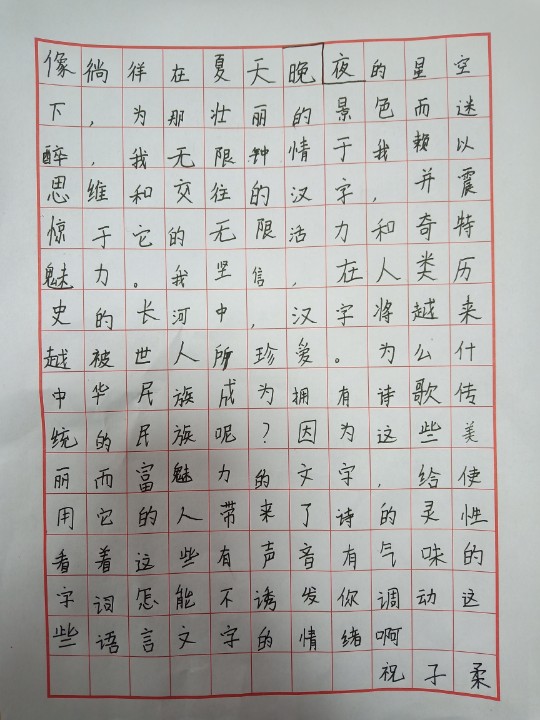 像徜徉在夏天晚夜的星空
下，为那壮丽的景色而迷
醉，我无限钟情于我赖以
思维和交往的汉字，并震
惊于它的无限活力和奇特
魅力。我坚信，在人类历
史的长河中，汉字将越来
越被世人所珍爱。为么什
中华民族成为拥有诗歌传
统的民族呢？因为这些美
丽而富魅力的文字，给使
用它的人带来了诗的灵性
看着这些有声音有气味的
字词怎能不诱发你调动这
些语言文字的情绪啊
祝子柔